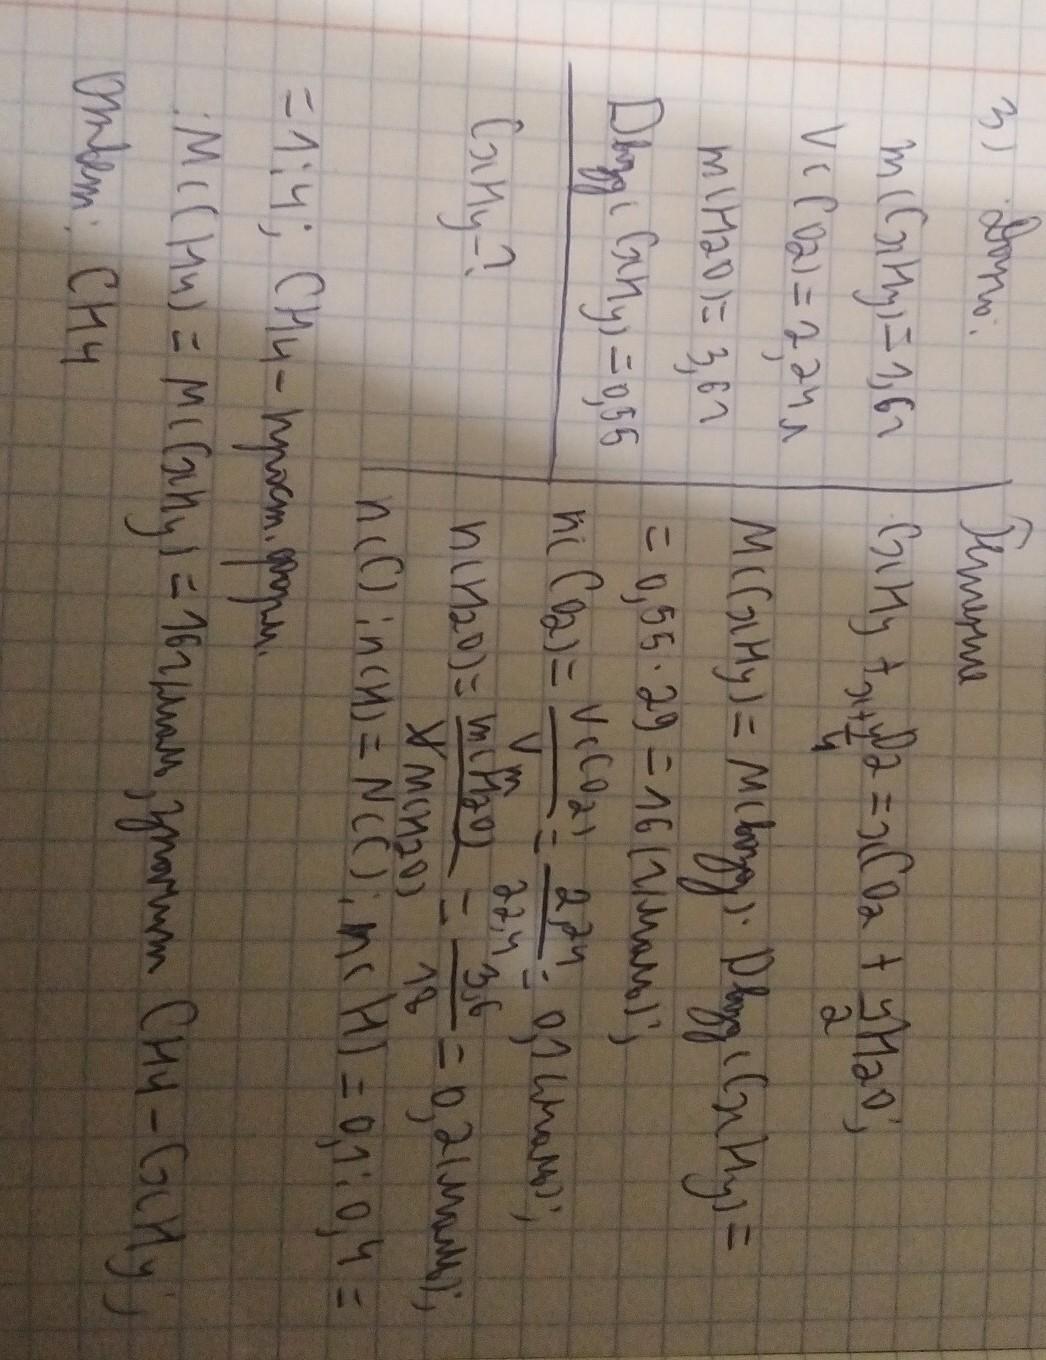 3) Дано:
m(CxHy)=1,6г
V(CO2)=2,24л
m(H2O)=3,6г
Dвозд(CxHy)=0,55
CxHy-?
Решение
CxHy + x+y/4 O2 = xCO2 + y/2 H2O;
M(CxHy) = M(возд)·Dвозд(CxHy) =
= 0,55·29 = 16(г/моль);
n(CO2) = V(CO2)/Vm = 2,24/22,4 = 0,1(моль);
n(H2O) = m(H2O)/M(H2O) = 3,6/18 = 0,2(моль);
n(C):n(H) = N(C):N(H) = 0,1:0,4 =
= 1:4; CH4 - прост. форм.
M(CH4) = M(CxHy) = 16г/моль, значит CH4 - CxHy;
Ответ: CH4